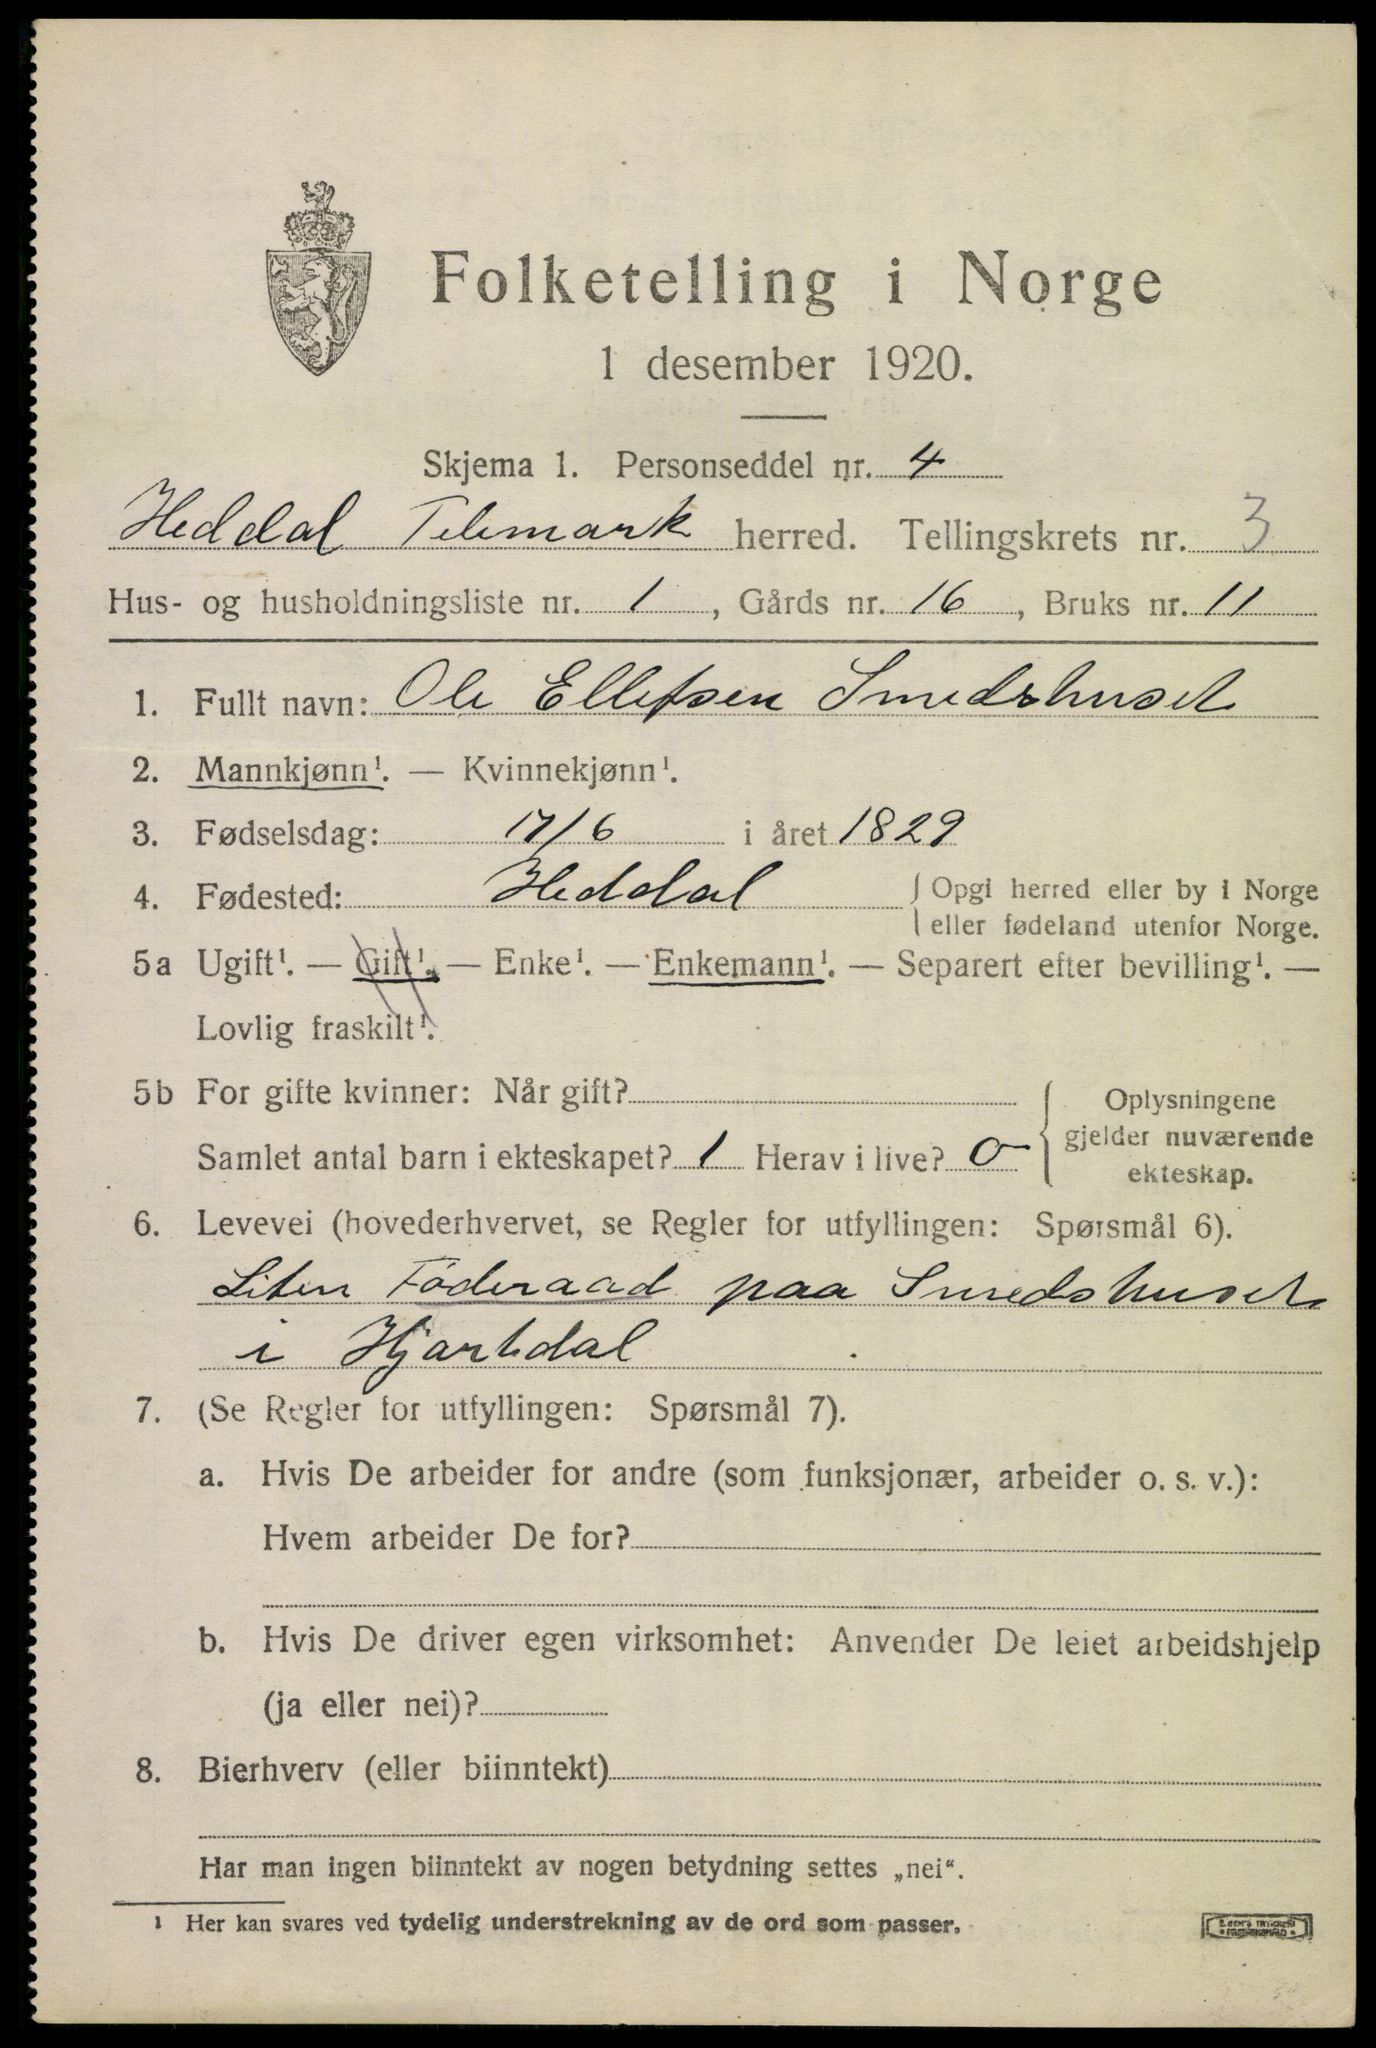 Folketelling i Norge
1 desember 1920.
Skjema 1. Personseddel nr. 4
Heddal Telemark herred. Tellingskrets nr. 3
Hus- og husholdningsliste nr. 1, Gårds nr. 16, Bruks nr. 11
1. Fullt navn: Ole Ellefsen Smedshuset
2. Mannkjønn¹. — Kvinnekjønn¹.
3. Fødselsdag: 17/6 i året 1829
4. Fødested: Heddal { Opgi herred eller by i Norge
eller fødeland utenfor Norge.
5a Ugift¹. — Gift¹. — Enke¹. — Enkemann¹. — Separert efter bevilling¹. —
Lovlig fraskilt¹.
5b For gifte kvinner: Når gift?
Samlet antal barn i ekteskapet? 1 Herav i live? 0
{ Oplysningene
gjelder nuværende
ekteskap.
6. Levevei (hovederhvervet, se Regler for utfyllingen: Spørsmål 6).
Liten Föderaad paa Smedshuset
i Hjartdal
7. (Se Regler for utfyllingen: Spørsmål 7).
a. Hvis De arbeider for andre (som funksjonær, arbeider o. s. v.):
Hvem arbeider De for?
b. Hvis De driver egen virksomhet: Anvender De leiet arbeidshjelp
(ja eller nei)?
8. Bierhverv (eller biinntekt)
Har man ingen biinntekt av nogen betydning settes „nei“.
¹ Her kan svares ved tydelig understrekning av de ord som passer.